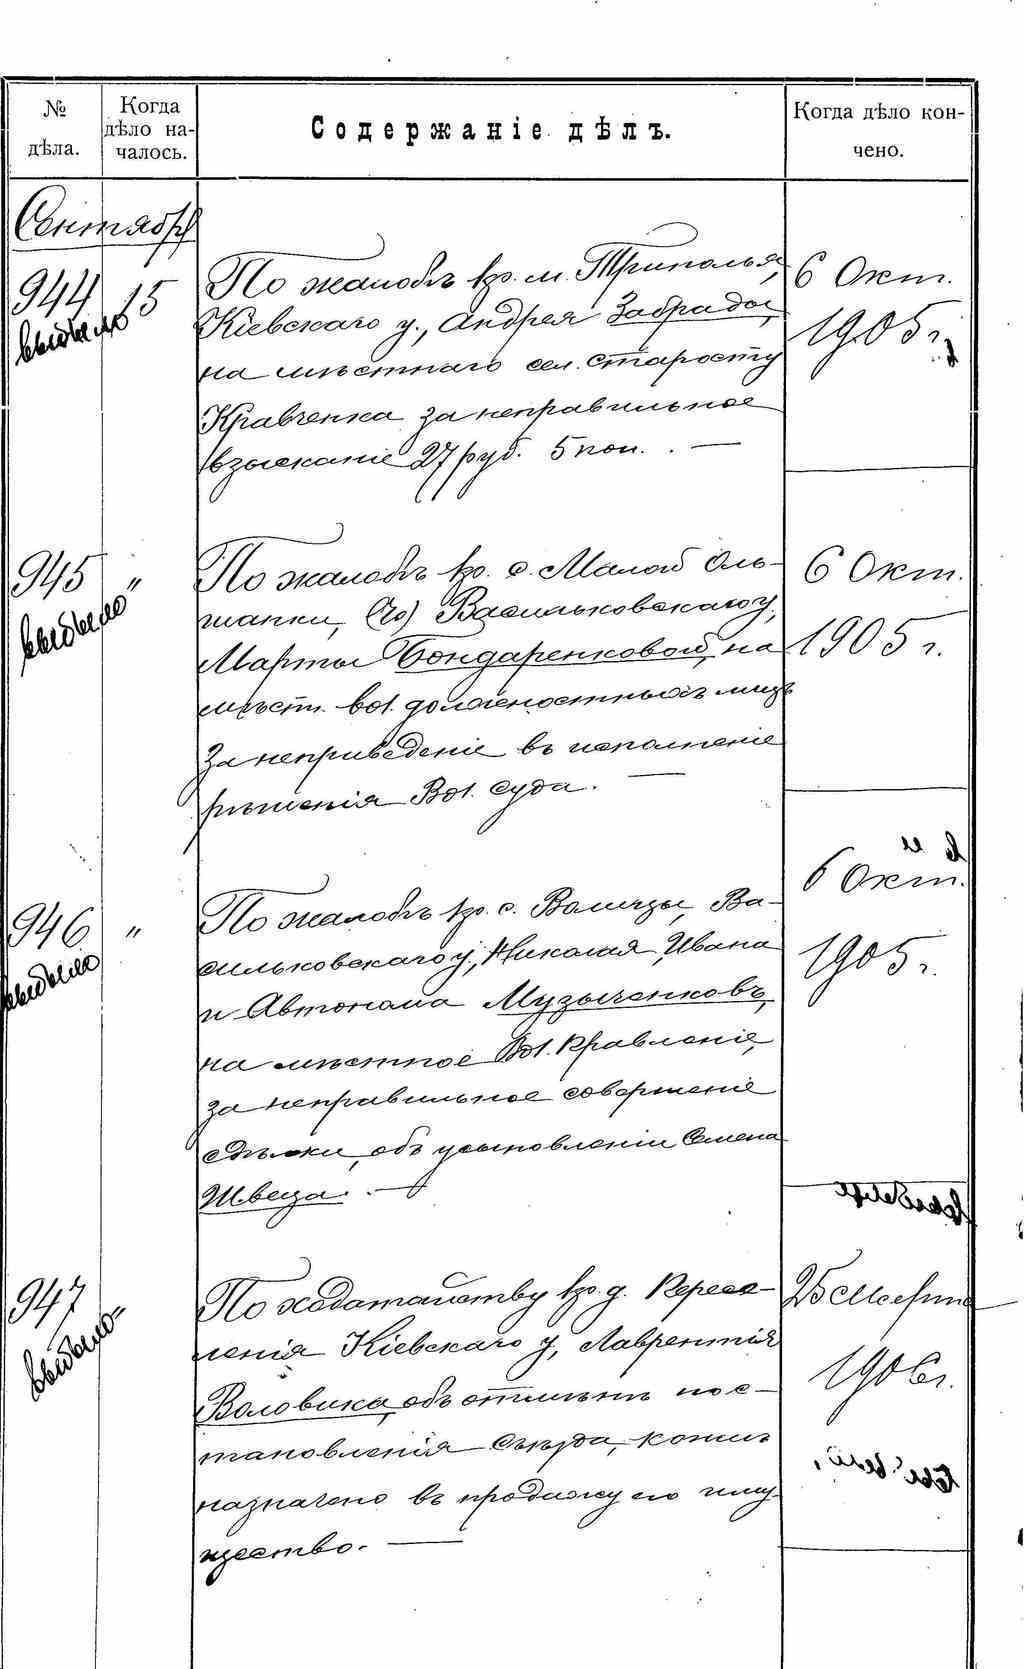 № дѣла.
Когда дѣло на-
чалось.
Содержаніе дѣлъ.
Когда дѣло кон-
чено.
Сентября
944 15
выбыло
По жалобѣ кр. м. Триполья,
Кіевскаго у., Андрея Забрады,
на мѣстнаго сел. старосту
Кравченка за неправильное
взысканіе 27 руб. 5 коп. . —
6 Окт.
1905 г.
945 "
выбыло
По жалобѣ кр. с. Малой Оль-
шанки, (го) Васильковскаго у.,
Марты Бондаренковой, на
мѣстн. вол. должностныхъ лицъ
за неприведеніе въ исполненіе
рѣшенія Вол. суда. —
6 Окт.
1905 г.
946 "
выбыло
По жалобѣ кр. с. Волицы, Ва-
сильковскаго у., Николая, Ивана
и Автонома Музыченковъ,
на мѣстное Вол. Правленіе,
за неправильное совершеніе
сдѣлки, объ усыновленіи Семена
Швеца. . —
6 Окт.
1905 г.
947 "
выбыло
По ходатайству кр. д. Пересе-
ленія Кіевскаго у., Лаврентія
Воловика, объ отмѣнѣ пос-
тановленія Съѣзда, коимъ
назначено въ продажу его иму-
щество. —
25 Марта
1906 г.